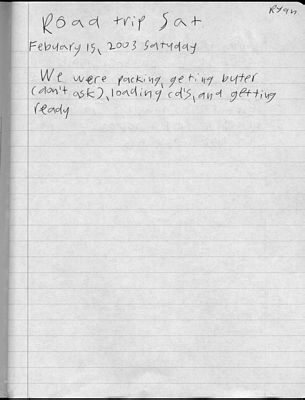 Ryan
Road trip Sat
Febuary 15, 2003 Satuday
We were packing, geting buter
(don't ask), loading cd's, and getting
ready